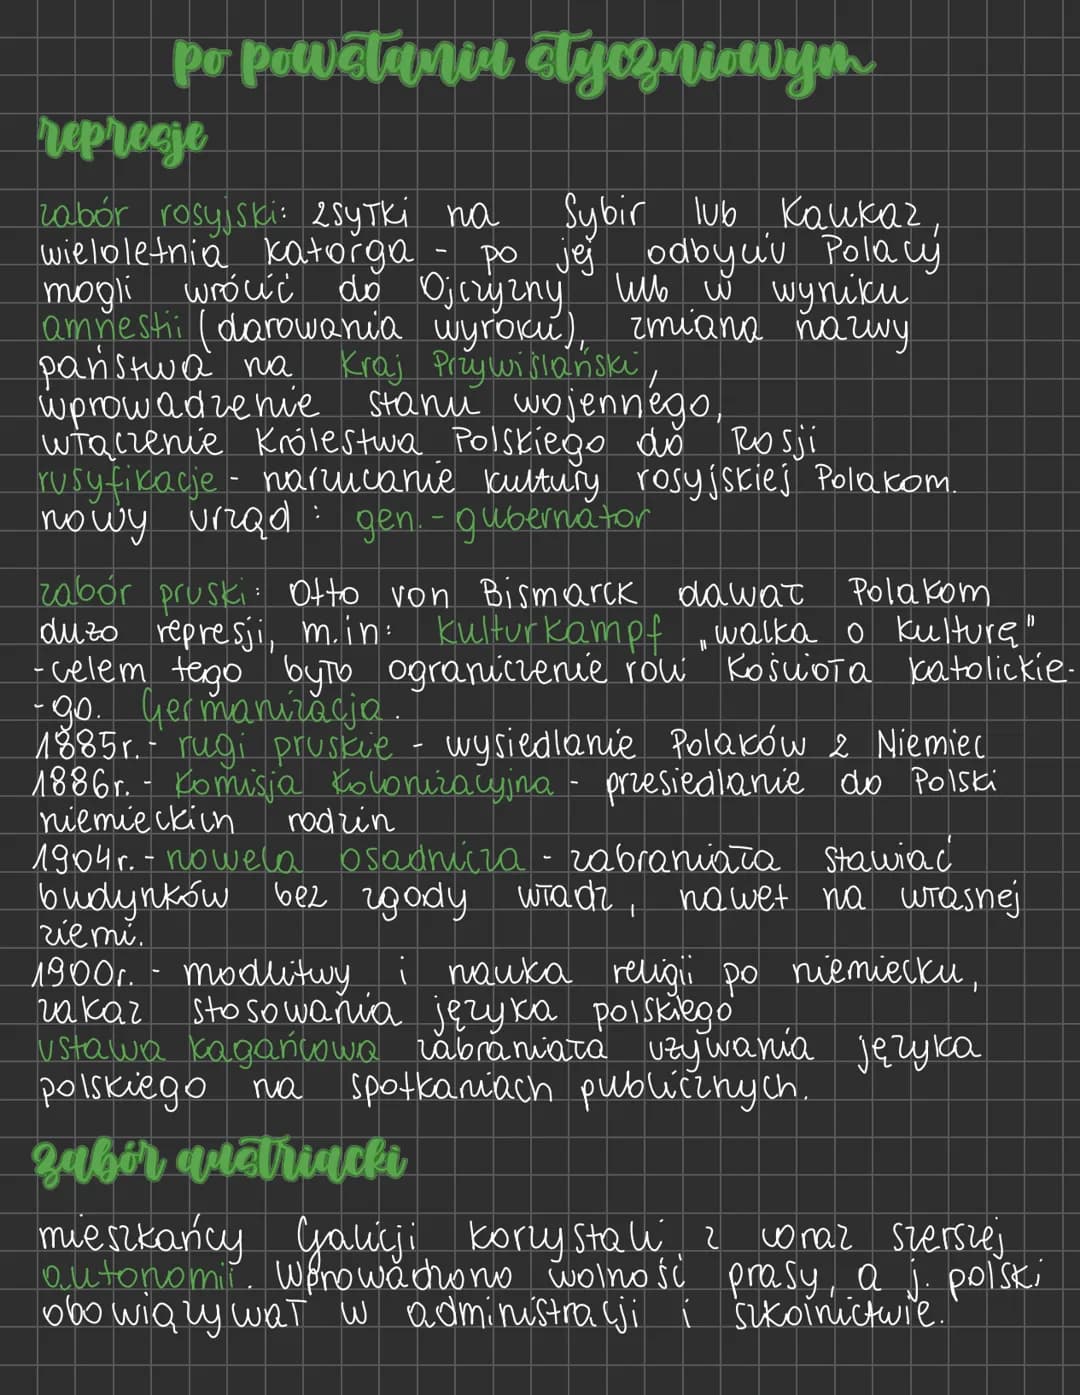 po powstaniu styczniowym
represje
zabór rosyjski: zsyłki na Sybir lub Kaukaz,
wieloletnia katorga - po jej odbyciu Polacy
mogli wrócić do Ojczyzny lub w wyniku
amnestii (darowania wyroku), zmiana nazwy
państwa na Kraj Przywiślański,
wprowadzenie stanu wojennego,
włączenie Królestwa Polskiego do Rosji
rusyfikacje - narzucanie kultury rosyjskiej Polakom.
nowy urząd: gen.-gubernator
zabór pruski: Otto von Bismarck dawał Polakom
dużo represji, m.in: Kulturkampf „walka o kulturę"
-celem tego było ograniczenie roli Kościoła katolickie-
-go. Germanizacja.
1885r.- rugi pruskie - wysiedlanie Polaków z Niemiec
1886r. - Komisja Kolonizacyjna - przesiedlanie do Polski
niemieckich rodzin
1904r. - nowela osadnicza - zabraniała stawiać
budynków bez zgody władz, nawet na własnej
ziemi.
1900r. - modlitwy i nauka religii po niemiecku,
zakaz stosowania języka polskiego
ustawa kagańcowa zabraniała używania języka
polskiego na spotkaniach publicznych.
zabór austriacki
mieszkańcy Galicji korzystali z coraz szerszej
autonomii. Wprowadzono wolność prasy, a j. polski
obowiązywał w administracji i szkolnictwie.